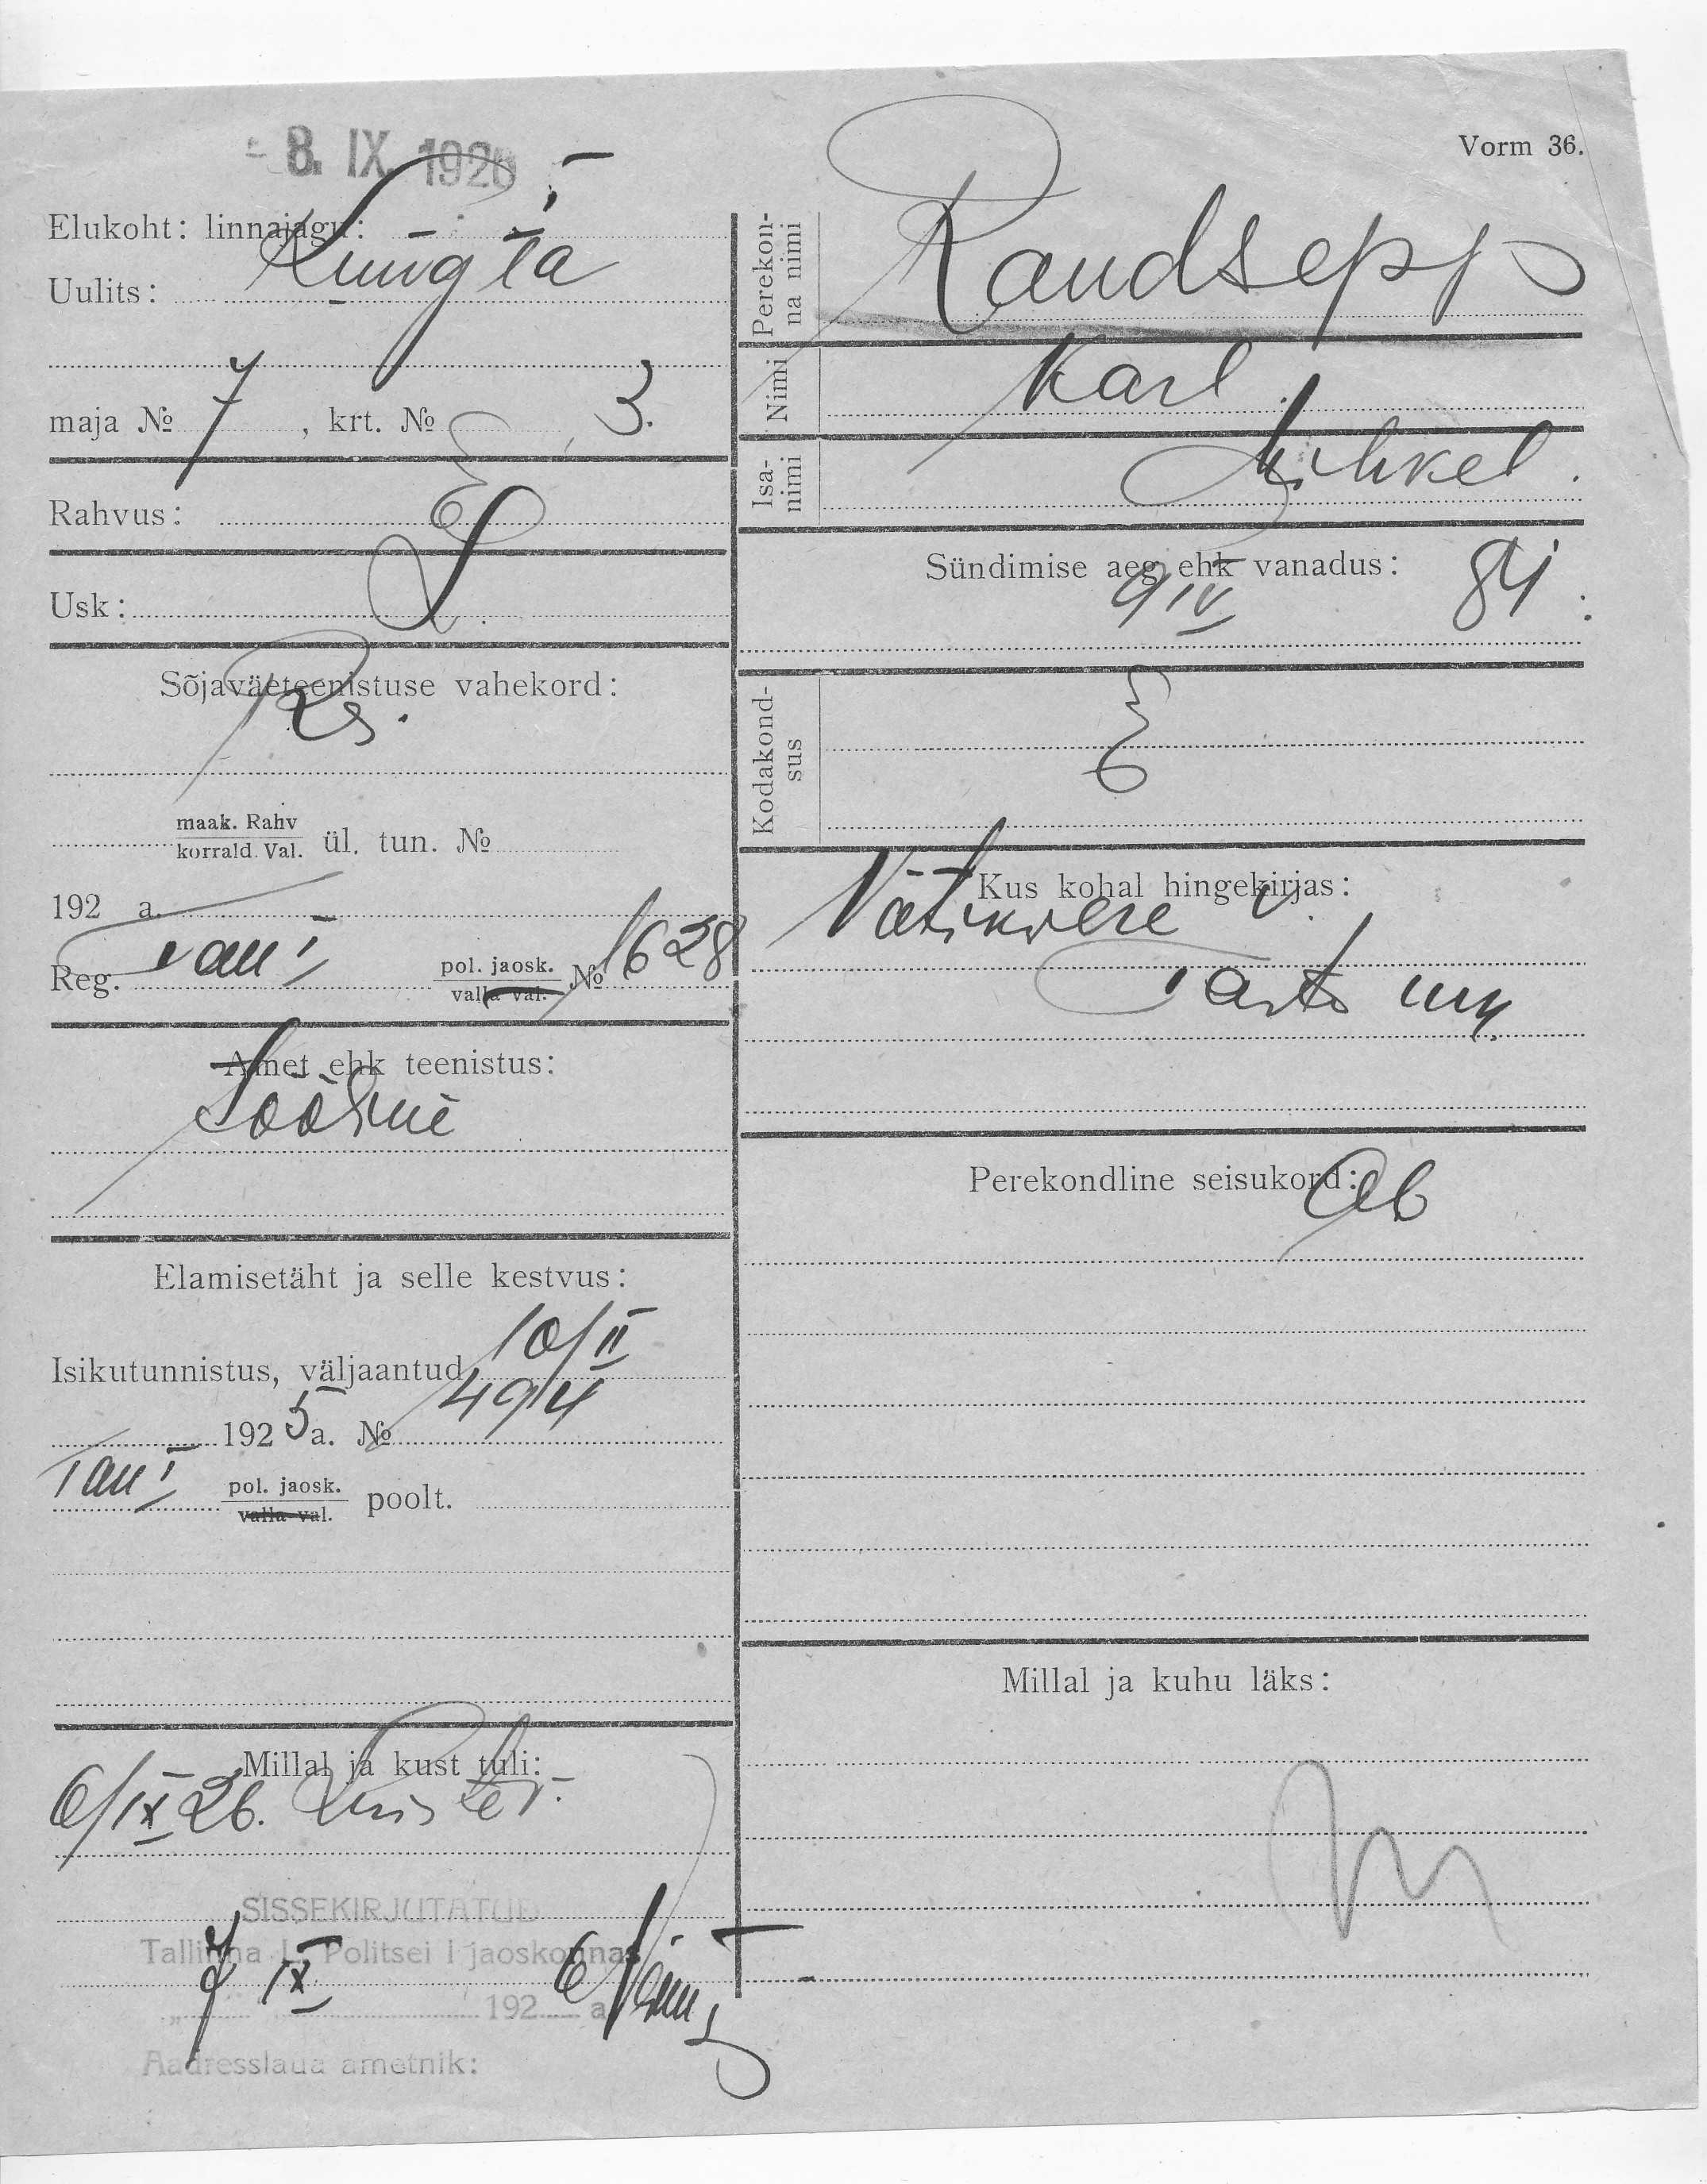 - 8. IX. 1926
Vorm 36.
Elukoht: linnajagu: I
Uulits: Kungla
maja № 7, krt. № 3.
Rahvus: E
Usk: L.
Sõjaväeteenistuse vahekord:
Rs.
maak. Rahv
korrald. Val. ül. tun. №
192 a.
Reg. Tall I pol. jaosk. № 1628
valla val.
Amet ehk teenistus:
Tööline
Elamisetäht ja selle kestvus:
Isikutunnistus, väljaantud 10/II
1925 a. № 494
Tall I pol. jaosk. poolt.
valla val.
Millal ja kust tuli:
6/IX 26.
SISSEKIRJUTATUD
Tallinna L. Politsei I jaoskonnas
7 IX 1926 a.
Aadresslaua ametnik:
Perekonna nimi Raudsepp
Nimi Karl
Isanimi Mihkel.
Sündimise aeg ehk vanadus:
9 IV 84.
Kodakondsus E
Kus kohal hingekirjas:
v.
Tartu mk.
Perekondline seisukord: Ab
Millal ja kuhu läks: